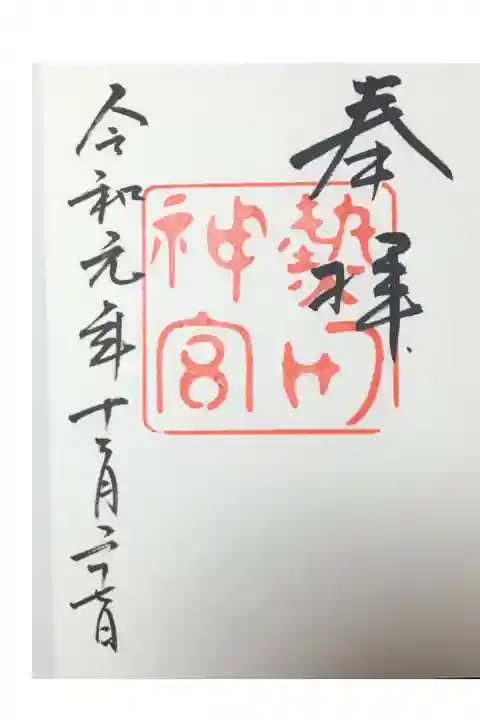 奉拝
熱田
神宮
令和元年十二月二十七日